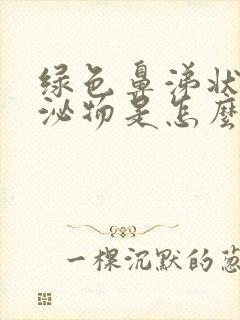 绿色鼻涕状
泌物是怎麽
一棵沉默的葱